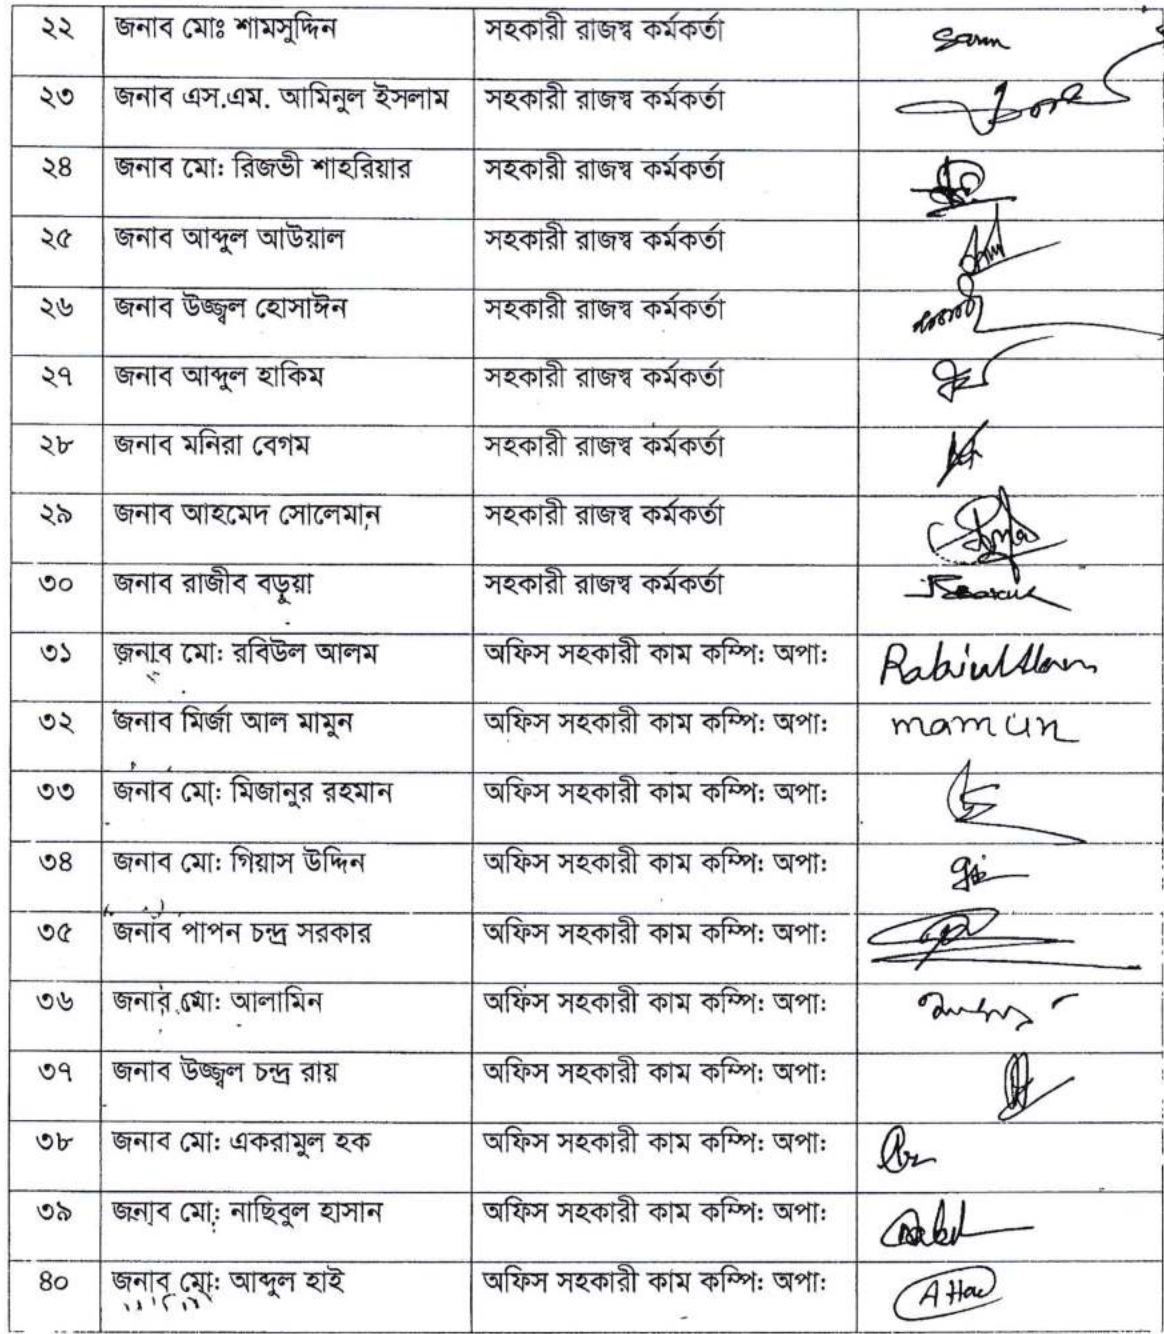 ২২ জনাব মোঃ শামসুদ্দিন সহকারী রাজস্ব কর্মকর্তা
২৩ জনাব এস.এম. আমিনুল ইসলাম সহকারী রাজস্ব কর্মকর্তা
২৪ জনাব মো: রিজভী শাহরিয়ার সহকারী রাজস্ব কর্মকর্তা
২৫ জনাব আব্দুল আউয়াল সহকারী রাজস্ব কর্মকর্তা
২৬ জনাব উজ্জ্বল হোসাঈন সহকারী রাজস্ব কর্মকর্তা
২৭ জনাব আব্দুল হাকিম সহকারী রাজস্ব কর্মকর্তা
২৮ জনাব মনিরা বেগম সহকারী রাজস্ব কর্মকর্তা
২৯ জনাব আহমেদ সোলেমান সহকারী রাজস্ব কর্মকর্তা
৩০ জনাব রাজীব বড়ুয়া সহকারী রাজস্ব কর্মকর্তা
৩১ জনাব মো: রবিউল আলম অফিস সহকারী কাম কম্পি: অপা: Rabiul Alam
৩২ জনাব মির্জা আল মামুন অফিস সহকারী কাম কম্পি: অপা: mamun
৩৩ জনাব মো: মিজানুর রহমান অফিস সহকারী কাম কম্পি: অপা:
৩৪ জনাব মো: গিয়াস উদ্দিন অফিস সহকারী কাম কম্পি: অপা:
৩৫ জনাব পাপন চন্দ্র সরকার অফিস সহকারী কাম কম্পি: অপা:
৩৬ জনাব মো: আলামিন অফিস সহকারী কাম কম্পি: অপা:
৩৭ জনাব উজ্জ্বল চন্দ্র রায় অফিস সহকারী কাম কম্পি: অপা:
৩৮ জনাব মো: একরামুল হক অফিস সহকারী কাম কম্পি: অপা:
৩৯ জনাব মো: নাছিবুল হাসান অফিস সহকারী কাম কম্পি: অপা:
৪০ জনাব মো: আব্দুল হাই অফিস সহকারী কাম কম্পি: অপা: